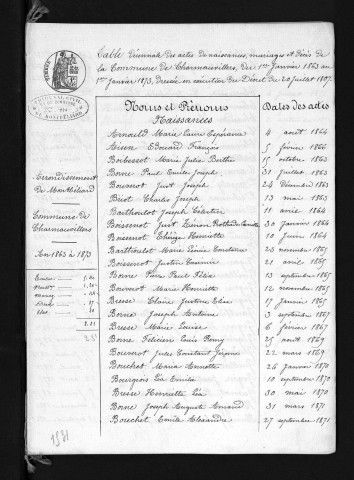 Table décennale des actes de naissances, mariages et décès de
la Commune de Charmauvillers, du 1er Janvier 1863 au
1er Janvier 1873, dressée en exécution du Décret du 20 juillet 1807.
TIMBRE
DE MONTBÉLIARD
Arrondissement
de Montbéliard
Commune de
Charmauvillers
An 1863 à 1873
Noms et Prénoms
Dates des actes
Naissances
Arnould Marie Laure Espérance 4 août 1864
Aisen Edouard François 5 février 1866
Bobesset Marie Julie Berthe 15 octobre 1863
Borne Paul Emile Joseph 31 juillet 1863
Bouverot Just Joseph 24 Décembre 1863
Briot Charles Joseph 13 mai 1863
Bartholot Joseph Célestin 11 avril 1864
Boissenot Just Zénon 30 Janvier 1864
Boissenot Thérèse Henriette 10 Juin 1864
Bartholot Marie Constance 25 novembre 1865
Boissenot Justin 21 avril 1865
Borne Pierre Paul Félix 13 septembre 1865
Bouverot Marie Henriette 12 novembre 1865
Besse Claire Justine Elise 17 janvier 1865
Borne Joseph Antoine 3 septembre 1867
Bresse Marie Louise 6 février 1867
Borne Félicien Louis Remy 25 août 1869
Bouverot Jules Constant 22 mars 1869
Bouchet Maria Annette 26 Janvier 1870
Bourgeois Léa Emilia 10 septembre 1870
Bresse Henriette Léa 30 mai 1870
Borne Joseph Auguste Armand 31 mars 1871
Bouchet Emile Alexandre 27 septembre 1871